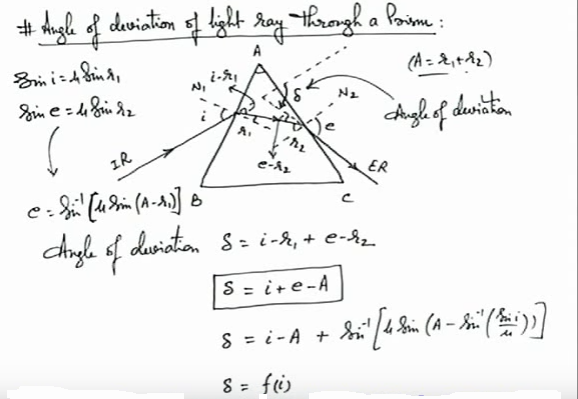 # Angle of deviation of light ray through a Prism :
A
(A = r₁ + r₂)
Sin i = μ Sin r₁
i-r₁
N₁
δ
N₂
Sin e = μ Sin r₂
i
e
Angle of deviation
r₁
r₂
IR
e-r₂
ER
e = Sin⁻¹ [μ Sin (A-r₁)]
B
C
Angle of deviation δ = i-r₁ + e-r₂
δ = i + e - A
δ = i - A + Sin⁻¹ [μ Sin (A - Sin⁻¹ (Sin i/μ))]
δ = f(i)